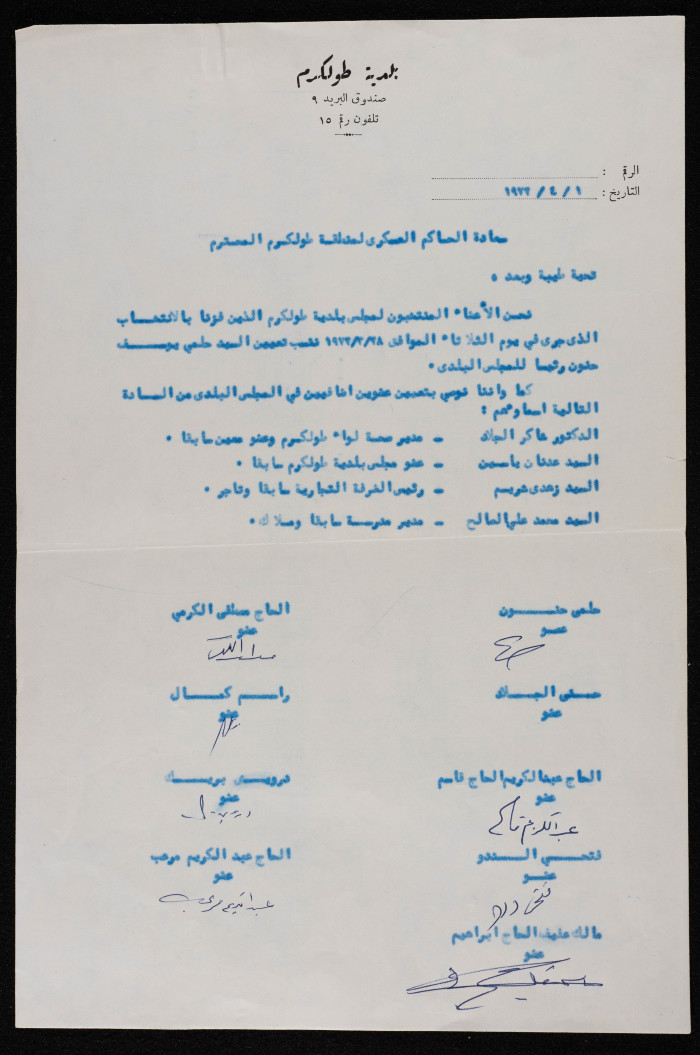 بلدية طولكرم
صندوق البريد ٩
تلفون رقم ١٥
الرقم :
التاريخ : ١ / ٤ / ١٩٧٢
سعادة الحاكم العسكرى لمنطقة طولكرم المحترم
تحية طيبة وبعد ،
نحن الأعضاء المنتخبون لمجلس بلدية طولكرم الذين فزنا بالانتخاب
الذى جرى في يوم الثلاثاء الموافق ١٩٧٢/٣/٢٨ ننسب تعيين السيد حلمي يوسف
حنون رئيسا للمجلس البلدى .
كما واننا نوصي بتعيين عضوين اضافيين في المجلس البلدى من السادة
التالية اسماؤهم :
الدكتور شاكر الجلاد – مدير صحة لواء طولكرم وعضو معين سابقا .
السيد عدنان ياسين – عضو مجلس بلدية طولكرم سابقا .
السيد زهدى شريم – رئيس الغرفة التجارية سابقا وتاجر .
السيد محمد علي الصالح – مدير مدرسة سابقا وملاك .
حلمي حنون
عضو
الحاج مصطفى الكرمي
عضو
حسني الجلاد
عضو
راسم كمال
عضو
الحاج عبدالكريم الحاج قاسم
عضو
عبد الكريم قاسم
درويش بريك
عضو
فتحي السدو
عضو
الحاج عبد الكريم مرعب
عضو
عبد الكريم مرعب
مالك عفيف الحاج ابراهيم
عضو